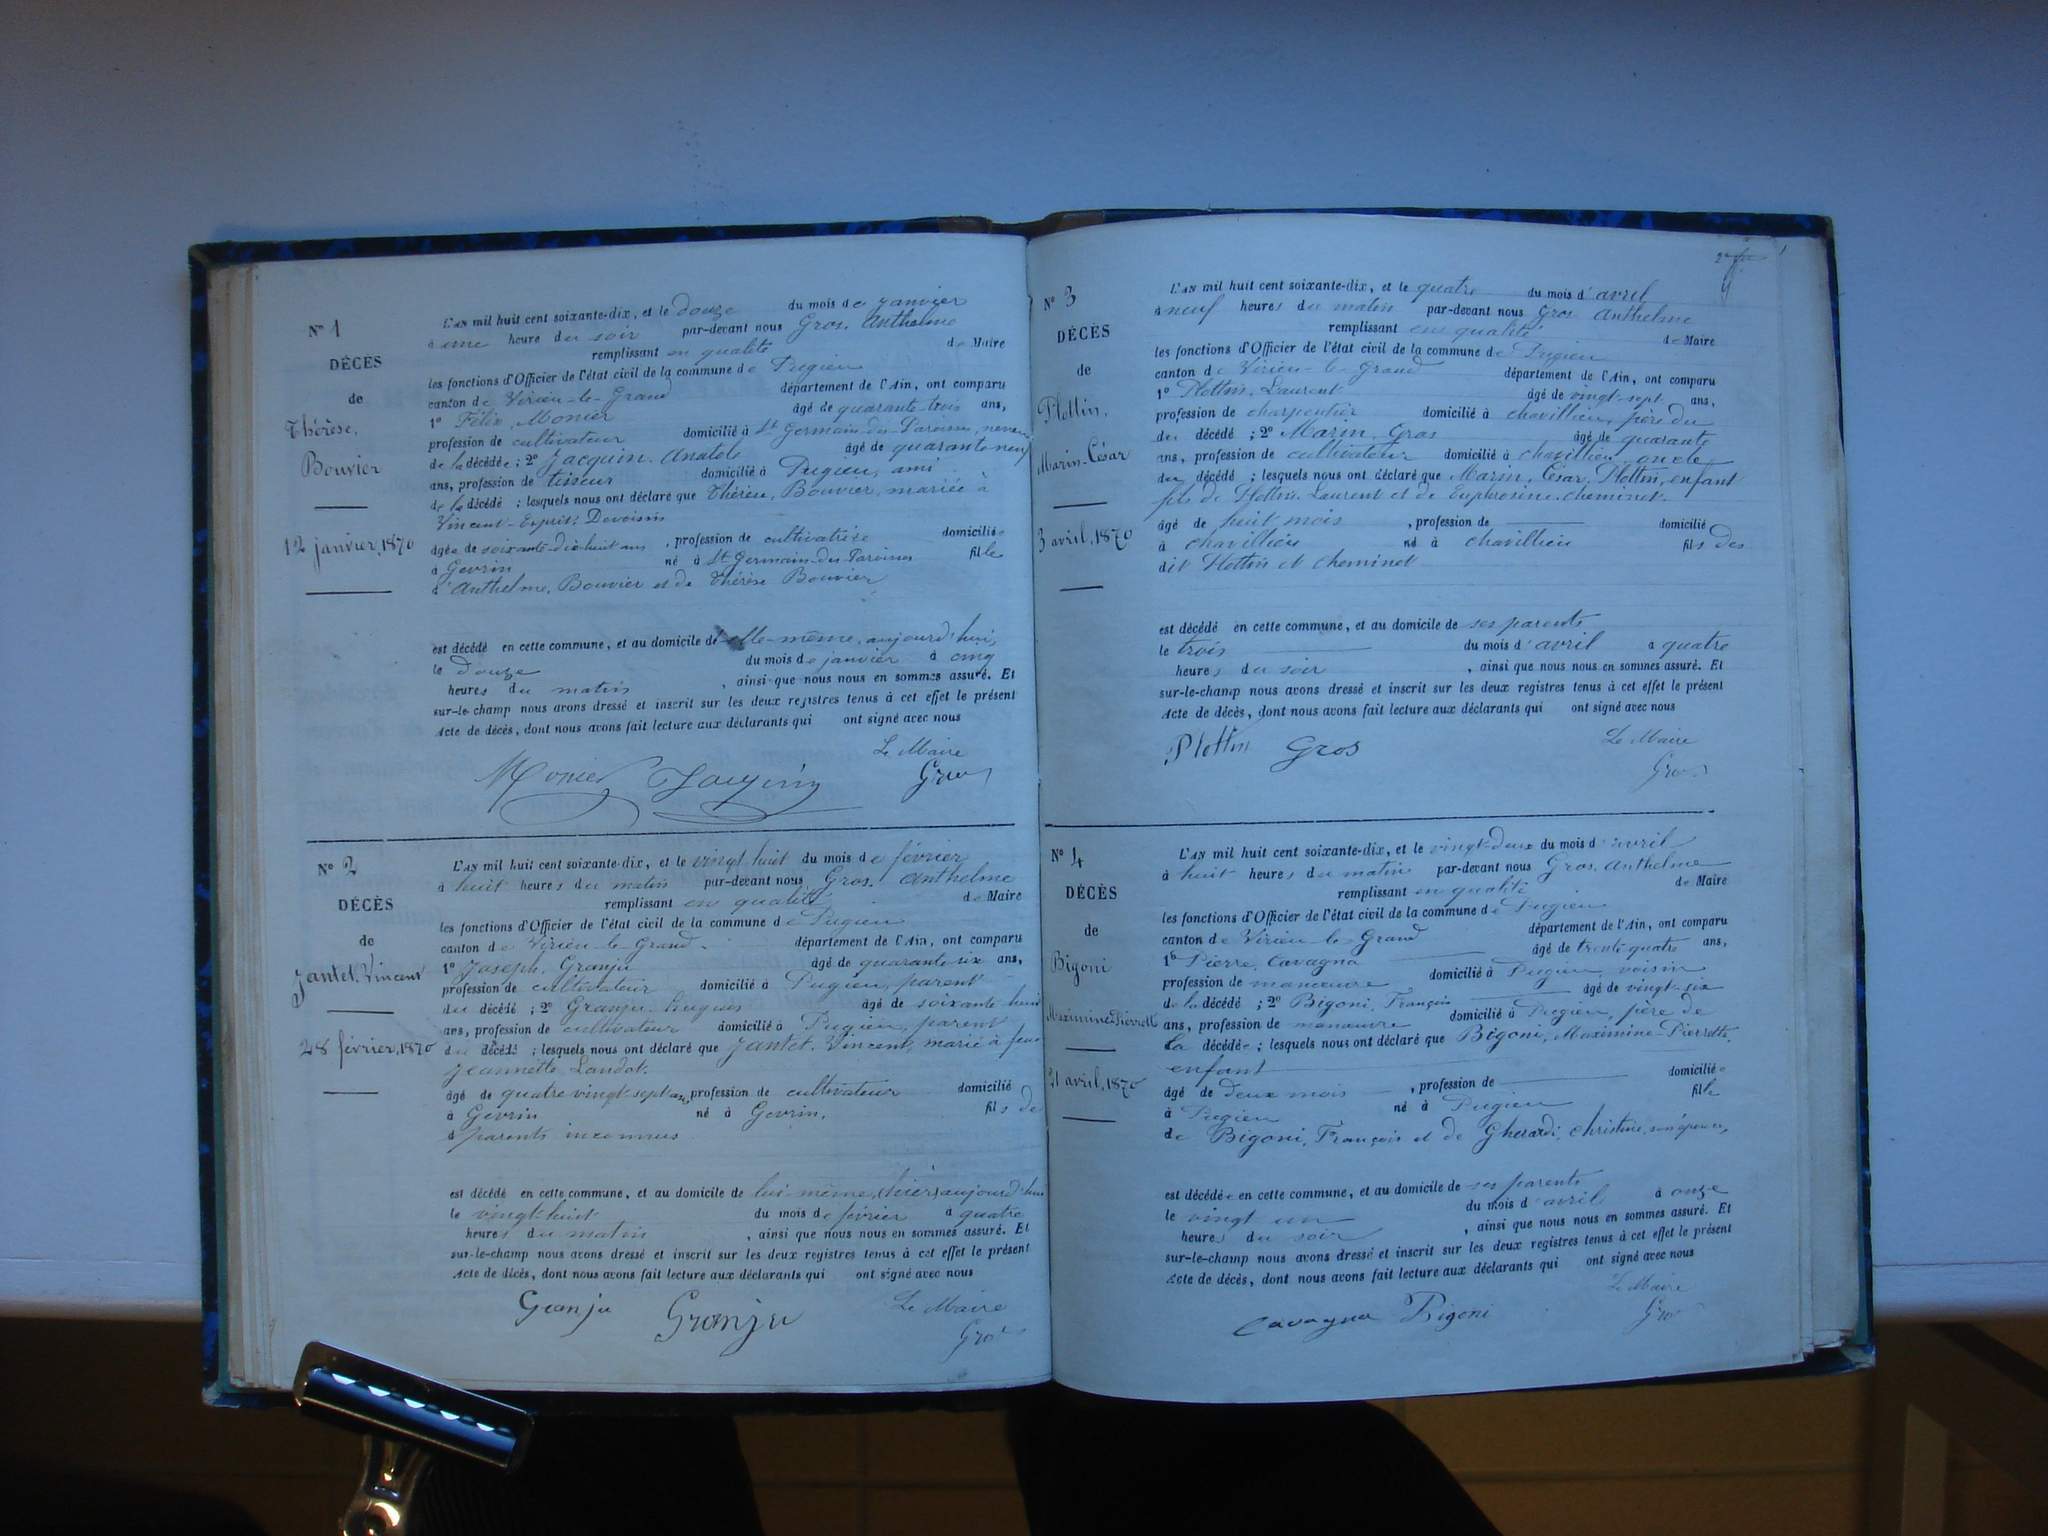 N° 1
DÉCÈS
de
Thérèse,
Bouvier
12 janvier, 1870
L'AN mil huit cent soixante-dix, et le douze du mois de janvier
à une heure du soir par-devant nous Gros, Anthelme
remplissant en qualité de Maire
les fonctions d'Officier de l'état civil de la commune de Pugieu
canton de Virieu-le-Grand département de l'Ain, ont comparu
1° Félix, Monier âgé de quarante-trois ans,
profession de cultivateur domicilié à St Germain-les-Paroisses, neveu
de la décédée ; 2° Jacquin, Anatole âgé de quarante-neuf
ans, profession de tisseur domicilié à Pugieu, ami
de la décédé ; lesquels nous ont déclaré que Thérèse, Bouvier, mariée à
Vincent-Esprit,
âgée de soixante-dix-huit ans, profession de cultivatrice domiciliée
à Gevrin né à St Germain-les-Paroisses fille
d'Anthelme, Bouvier et de Thérèse Bouvier
est décédé en cette commune, et au domicile de elle-même, aujourd'hui,
le douze du mois de janvier à cinq
heures du matin, ainsi que nous nous en sommes assuré. Et
sur-le-champ nous avons dressé et inscrit sur les deux registres tenus à cet effet le présent
Acte de décès, dont nous avons fait lecture aux déclarants qui ont signé avec nous
Le Maire
Monier Jacquin Gros
N° 2
DÉCÈS
de
Jantet, Vincent
28 février, 1870
L'AN mil huit cent soixante-dix, et le vingt huit du mois de février
à huit heures du matin par-devant nous Gros, Anthelme
remplissant en qualité de Maire
les fonctions d'Officier de l'état civil de la commune de Pugieu
canton de Virieu-le-Grand département de l'Ain, ont comparu
1° Joseph, Granju âgé de quarante six ans,
profession de cultivateur domicilié à Pugieu, parent
du décédé ; 2° Granju Hugues âgé de soixante huit
ans, profession de cultivateur domicilié à Pugieu, parent
du décédé ; lesquels nous ont déclaré que Jantet, Vincent, marié à feue
Jeannette Landot.
âgé de quatre vingt sept ans, profession de cultivateur domicilié
à Gevrin né à Gevrin, fils de
d parents inconnus
est décédé en cette commune, et au domicile de lui-même, (hier) aujourd'hui
le vingt huit du mois de février à quatre
heures du matin, ainsi que nous nous en sommes assuré. Et
sur-le-champ nous avons dressé et inscrit sur les deux registres tenus à cet effet le présent
Acte de décès, dont nous avons fait lecture aux déclarants qui ont signé avec nous
Granju Granju Le Maire
Gros
N° 3
DÉCÈS
de
Plottin,
Marin-César
3 avril, 1870
L'AN mil huit cent soixante-dix, et le quatre du mois d'avril
à neuf heures du matin par-devant nous Gros Anthelme
remplissant en qualité de Maire
les fonctions d'Officier de l'état civil de la commune de Pugieu
canton de Virieu-le-Grand département de l'Ain, ont comparu
1° Plottin, Laurent âgé de vingt-sept ans,
profession de charpentier domicilié à chavillieu, père du
du décédé ; 2° Marin, Gros âgé de quarante
ans, profession de cultivateur domicilié à chavillieu oncle
du décédé ; lesquels nous ont déclaré que Marin, César, Plottin, enfant
fils de Plottin, Laurent et de Euphrosine, cheminet.
âgé de huit mois, profession de domicilié
à chavillieu né à chavillieu fils des
dit Plottin et cheminet
est décédé en cette commune, et au domicile de ses parents
le trois du mois d'avril à quatre
heures du soir, ainsi que nous nous en sommes assuré. Et
sur-le-champ nous avons dressé et inscrit sur les deux registres tenus à cet effet le présent
Acte de décès, dont nous avons fait lecture aux déclarants qui ont signé avec nous
Plottin Gros Le Maire
Gros
N° 4
DÉCÈS
de
Bigoni
Maximine-Pierrette
21 avril, 1870
L'AN mil huit cent soixante-dix, et le vingt-deux du mois d'avril
à huit heures du matin par-devant nous Gros, Anthelme
remplissant en qualité de Maire
les fonctions d'Officier de l'état civil de la commune de Pugieu
canton de Virieu-le-Grand département de l'Ain, ont comparu
1° Pierre, Cavagna âgé de trente quatre ans,
profession de manœuvre domicilié à Pugieu, voisin
de la décédé ; 2° Bigoni, François âgé de vingt-six
ans, profession de manœuvre domicilié à Pugieu, père de
la décédée ; lesquels nous ont déclaré que Bigoni, Maximine-Pierrette,
enfant
âgé de deux mois, profession de domiciliée
à Pugieu né à Pugieu fille
de Bigoni, François et de Gherardi, Christine, son épouse,
est décédée en cette commune, et au domicile de ses parents
le vingt un du mois d'avril à onze
heures du soir, ainsi que nous nous en sommes assuré. Et
sur-le-champ nous avons dressé et inscrit sur les deux registres tenus à cet effet le présent
Acte de décès, dont nous avons fait lecture aux déclarants qui ont signé avec nous
Le Maire
Cavagna Bigoni Gros